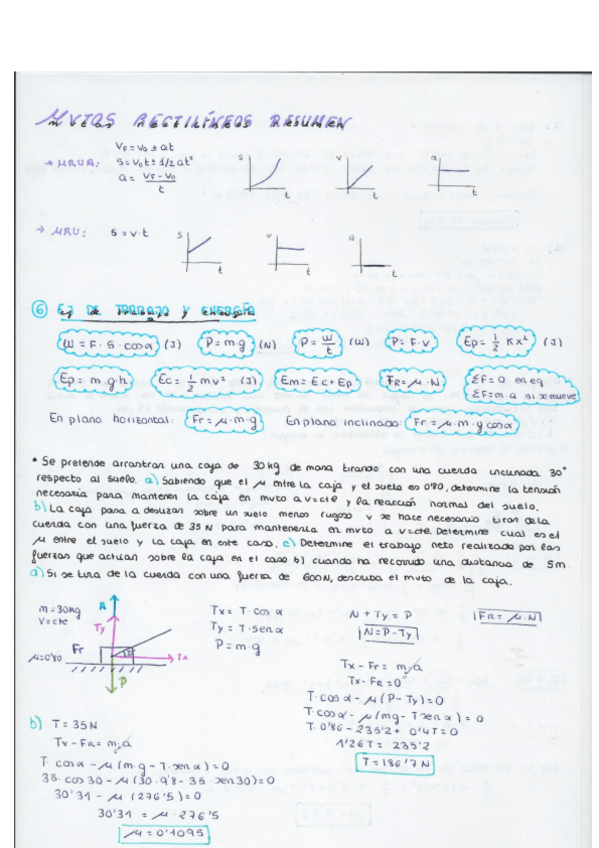 MVTOS RECTILÍNEOS RESUMEN
VF = V0 ± at
→ MRUA: S = V0t ± 1/2 at²
a = VF - V0 / t
S t V t a t
→ MRU: S = v·t S t V t a t
⑥ EJ DE TRABAJO Y ENERGÍA
W = F·S·cosα (J) P = m·g (N) P = W/t (W) P = F·V Ep = 1/2 Kx² (J)
Ep = m.g.h Ec = 1/2 mv² (J) Em = Ec + Ep FR = μ·N ΣF = 0 en eq
ΣF = m.a si se mueve
En plano horizontal: Fr = μ·m·g En plano inclinado: Fr = μ·m·g cosα
* Se pretende arrastrar una caja de 30 kg de masa tirando con una cuerda inclinada 30°
respecto al suelo. a) Sabiendo que el μ entre la caja y el suelo es 0'80, determine la tensión
necesaria para mantener la caja en mvto a v=cte y la reacción normal del suelo.
b) La caja pasa a deslizar sobre un suelo menos rugoso y se hace necesario tirar de la
cuerda con una fuerza de 35 N para mantenerla en mvto a v=cte. Determine cual es el
μ entre el suelo y la caja en este caso. c) Determine el trabajo neto realizado por las
fuerzas que actúan sobre la caja en el caso b) cuando ha recorrido una distancia de 5m.
d) Si se tira de la cuerda con una fuerza de 600N, describa el mvto de la caja.
m = 30kg
V = cte
μ = 0'80
N
Ty
Fr
Tx
P
Tx = T·cos α
Ty = T·sen α
P = m·g
N + Ty = P
N = P - Ty
FR = μ·N
Tx - Fr = m·a
Tx - Fr = 0
T·cos α - μ(P - Ty) = 0
T·cos α - μ(mg - T sen α) = 0
T·0'86 - 235'2 + 0'4T = 0
1'26T = 235'2
T = 186'7 N
b) T = 35N
Tx - FR = m·a
T·cos α - μ(m·g - T·sen α) = 0
35·cos 30 - μ(30·9'8 - 35·sen 30) = 0
30'31 - μ(276'5) = 0
30'31 = μ·276'5
μ = 0'1095